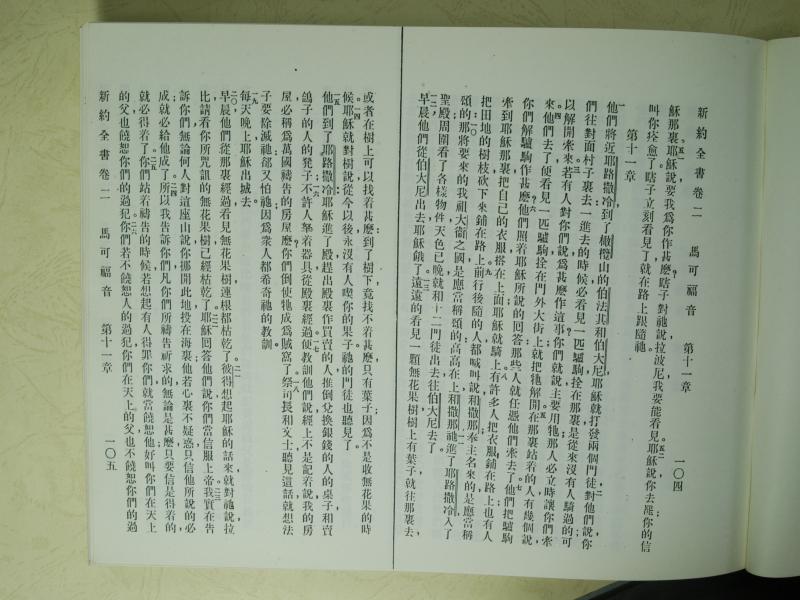 新約全書卷二 馬可福音 第十一章 一〇四
穌那裏五一耶穌說要我爲你作甚麼瞎子對祂說拉波尼我要能看見五二耶穌說你去罷你的信
叫你痊愈了瞎子立刻看見了就在路上跟隨祂
第十一章
一他們將近耶路撒冷到了橄欖山的伯法其和伯大尼耶穌就打發兩個門徒二對他們說你
們往對面村子裏去一進去的時候必看見一匹驢駒拴在那裏是從來沒有人騎過的可
以解開牽來三若有人對你們說爲甚麼作這事你們就說主要用牠那人必立時讓你們牽
來四他們去了便看見一匹驢駒拴在門外大街上就把牠解開五在那裏站着的人有幾個說
你們解驢駒作甚麼六他們照着耶穌所說的回答那些人就任憑他們牽去了七他們把驢駒
牽到耶穌那裏把自己的衣服搭在上面耶穌就騎上八有許多人把衣服鋪在路上也有人
把田地的樹枝砍下來鋪在路上九前行後隨的人都喊叫說和撒那奉主名來的是應當稱
頌的一〇那將要來的我祖大衞之國是應當稱頌的高高在上和撒那一一祂進了耶路撒冷入了
聖殿周圍看了各樣物件天色已晚就和十二門徒出去往伯大尼去了
一二早晨他們從伯大尼出去耶穌餓了一三遠遠的看見一顆無花果樹樹上有葉子就往那裏去
或者在樹上可以找着甚麼到了樹下竟找不着甚麼只有葉子因爲不是收無花果的時
候一四耶穌就對樹說從今以後永沒有人喫你的果子祂的門徒也聽見了
一五他們到了耶路撒冷耶穌進了殿趕出殿裏作買賣的人推倒兌換銀錢的人的桌子和賣
鴿子的人的凳子一六不許人拏着器具從殿裏經過一七便教訓他們說經上不是記着說我的房
屋必稱爲萬國禱告的房屋麼你們倒使牠成爲賊窩了一八祭司長和文士聽見這話就想法
子要除滅祂卻又怕祂因爲衆人都希奇祂的教訓
一九每天晚上耶穌出城去
二〇早晨他們從那裏經過看見無花果樹連根都枯乾了二一彼得想起耶穌的話來就對祂說拉
比請看你所咒詛的無花果樹已經枯乾了二二耶穌回答他們說你們當信服上帝二三我實在告
訴你們無論何人對這座山說你挪開此地投在海裏他若心裏不疑惑只信他所說的必
成就必給他成了二四所以我告訴你們凡你們所禱告祈求的無論是甚麼只要信是得着的
就必得着了二五你們站着禱告的時候若想起有人得罪你們就當饒恕他好叫你們在天上
的父也饒恕你們的過犯二六你們若不饒恕人的過犯你們在天上的父也不饒恕你們的過
新約全書卷二 馬可福音 第十一章 一〇五